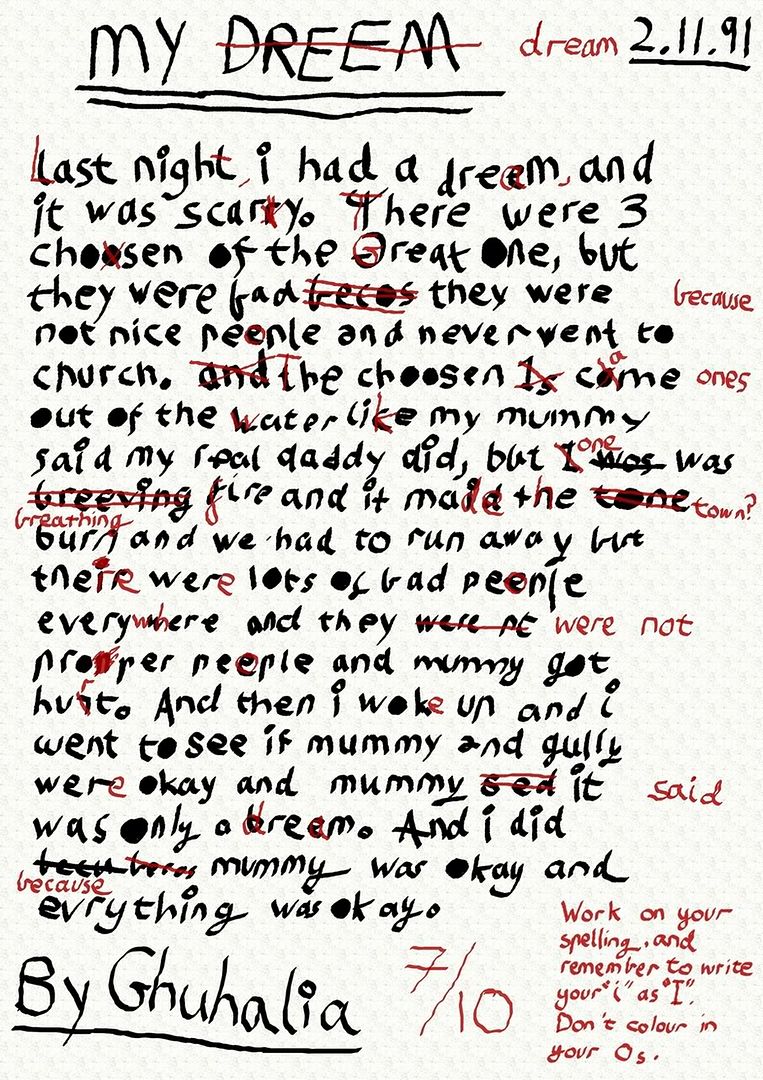 MY DREEM dream 2.11.91
Last night, i had a dream, and
it was scary. There were 3
choosen of the Great One, but
they were bad becos they were because
not nice peeople and never went to
church. and The choosen Is came ones
out of the water like my mummy
said my real daddy did, but I one was was
breeving fire and it made the tone town?
breathing
burn and we had to run away but
theire were lots of bad peeople
everywhere and they were nt were not
propper peeople and mummy got
hurt. And then i woke up and i
went to see if mummy and gully
were okay and mummy sed it said
was only a dream. And i did
mummy was okay and
because
evrything was okay.
By Ghuhalia
7/10
Work on your
spelling, and
remember to write
your "i" as "I".
Don't colour in
your Os.